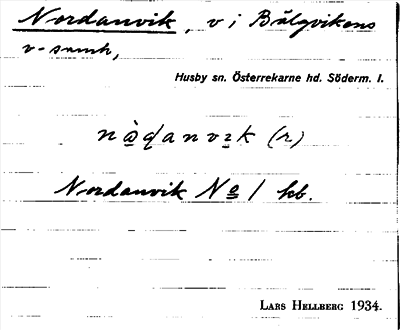 Nordanvik, v i Bälgvikens
v-samh,
Husby sn. Österrekarne hd. Söderm. l.
Nordanvik No 1 kb.
LARS HELLBERG 1934.